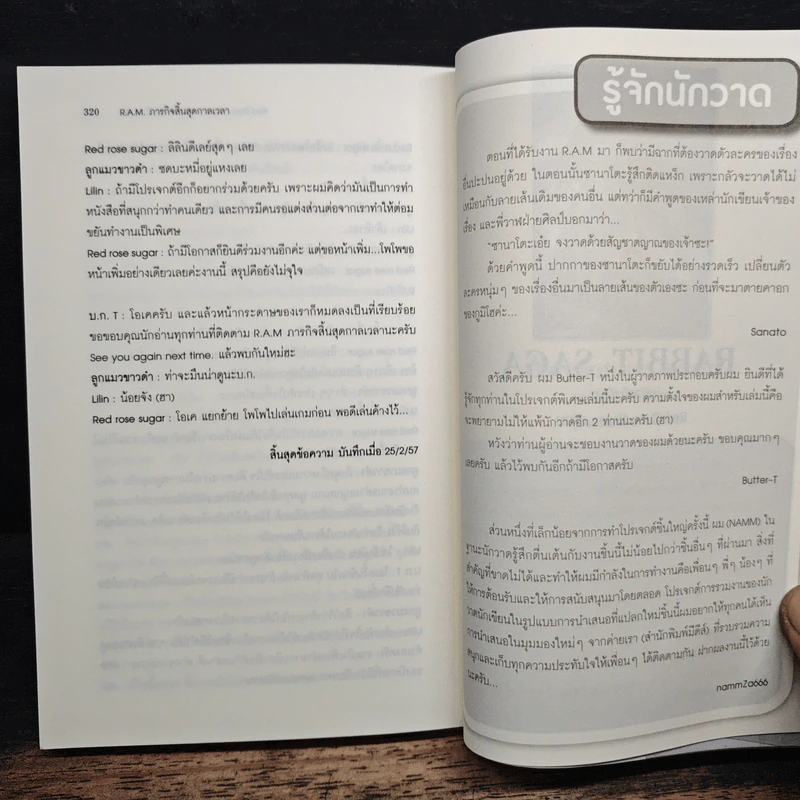 320 R.A.M. ภารกิจสิ้นสุดกาลเวลา
Red rose sugar : ลิลินดีเลย์สุดๆ เลย
ลูกแมวขาวดำ : ซดบะหมี่อยู่แหงเลย
Lilin : ถ้ามีโปรเจกต์อีกก็อยากร่วมด้วยครับ เพราะผมคิดว่ามันเป็นการทำ
หนังสือที่สนุกกว่าทำคนเดียว และการมีคนรอแต่งส่วนต่อจากเราทำให้ต่อม
ขยันทำงานเป็นพิเศษ
Red rose sugar : ถ้ามีโอกาสก็ยินดีร่วมงานอีกค่ะ แต่ขอหน้าเพิ่ม...โพโพขอ
หน้าเพิ่มอย่างเดียวเลยค่ะงานนี้ สรุปคือยังไม่จุใจ
บ.ก. T : โอเคครับ และแล้วหน้ากระดาษของเราก็หมดลงเป็นที่เรียบร้อย
ขอขอบคุณนักอ่านทุกท่านที่ติดตาม R.A.M ภารกิจสิ้นสุดกาลเวลานะครับ
See you again next time. แล้วพบกันใหม่ฮะ
ลูกแมวขาวดำ : ท่าจะมึนน่าดูนะบ.ก.
Lilin : น้อยจัง (ฮา)
Red rose sugar : โอเค แยกย้าย โพโพไปเล่นเกมก่อน พอดีเล่นค้างไว้...
สิ้นสุดข้อความ บันทึกเมื่อ 25/2/57
รู้จักนักวาด
ตอนที่ได้รับงาน R.A.M มา ก็พบว่ามีฉากที่ต้องวาดตัวละครของเรื่อง
อื่นปะปนอยู่ด้วย ในตอนนั้นซานาโตะรู้สึกติดแหง็ก เพราะกลัวจะวาดได้ไม่
เหมือนกับลายเส้นเดิมของคนอื่น แต่ทว่าก็มีคำพูดของเหล่านักเขียนเจ้าของ
เรื่อง และพี่วาฬฝ่ายศิลป์บอกมาว่า...
"ซานาโตะเอ๋ย จงวาดด้วยสัญชาตญาณของเจ้าซะ!"
ด้วยคำพูดนี้ ปากกาของซานาโตะก็ขยับได้อย่างรวดเร็ว เปลี่ยนตัว
ละครหนุ่มๆ ของเรื่องอื่นมาเป็นลายเส้นของตัวเองซะ ก่อนที่จะมาตายคาอก
ของภูมิโฮค่ะ...
Sanato
สวัสดีครับ ผม Butter-T หนึ่งในผู้วาดภาพประกอบครับผม ยินดีที่ได้
รู้จักทุกท่านในโปรเจกต์พิเศษเล่มนี้นะครับ ความตั้งใจของผมสำหรับเล่มนี้คือ
จะพยายามไม่ให้แพ้นักวาดอีก 2 ท่านนะครับ (ฮา)
หวังว่าท่านผู้อ่านจะชอบงานวาดของผมด้วยนะครับ ขอบคุณมากๆ
เลยครับ แล้วไว้พบกันอีกถ้ามีโอกาสครับ
Butter-T
ส่วนหนึ่งที่เล็กน้อยจากการทำโปรเจกต์ชิ้นใหญ่ครั้งนี้ ผม (NAMM) ใน
ฐานะนักวาดรู้สึกตื่นเต้นกับงานชิ้นนี้ไม่น้อยไปกว่าชิ้นอื่นๆ ที่ผ่านมา สิ่งที่
สำคัญที่ขาดไม่ได้และทำให้ผมมีกำลังในการทำงานคือเพื่อนๆ พี่ๆ น้องๆ ที่
ให้การต้อนรับและให้การสนับสนุนมาโดยตลอด โปรเจกต์การรวมงานของนัก
วาดนักเขียนในรูปแบบการนำเสนอที่แปลกใหม่ชิ้นนี้ผมอยากให้ทุกคนได้เห็น
การนำเสนอในมุมมองใหม่ๆ จากค่ายเรา (สำนักพิมพ์มีดีส์) ที่รวบรวมความ
สนุกและเก็บทุกความประทับใจให้เพื่อนๆ ได้ติดตามกัน ฝากผลงานนี้ไว้ด้วย
นะครับ...
nammZa666